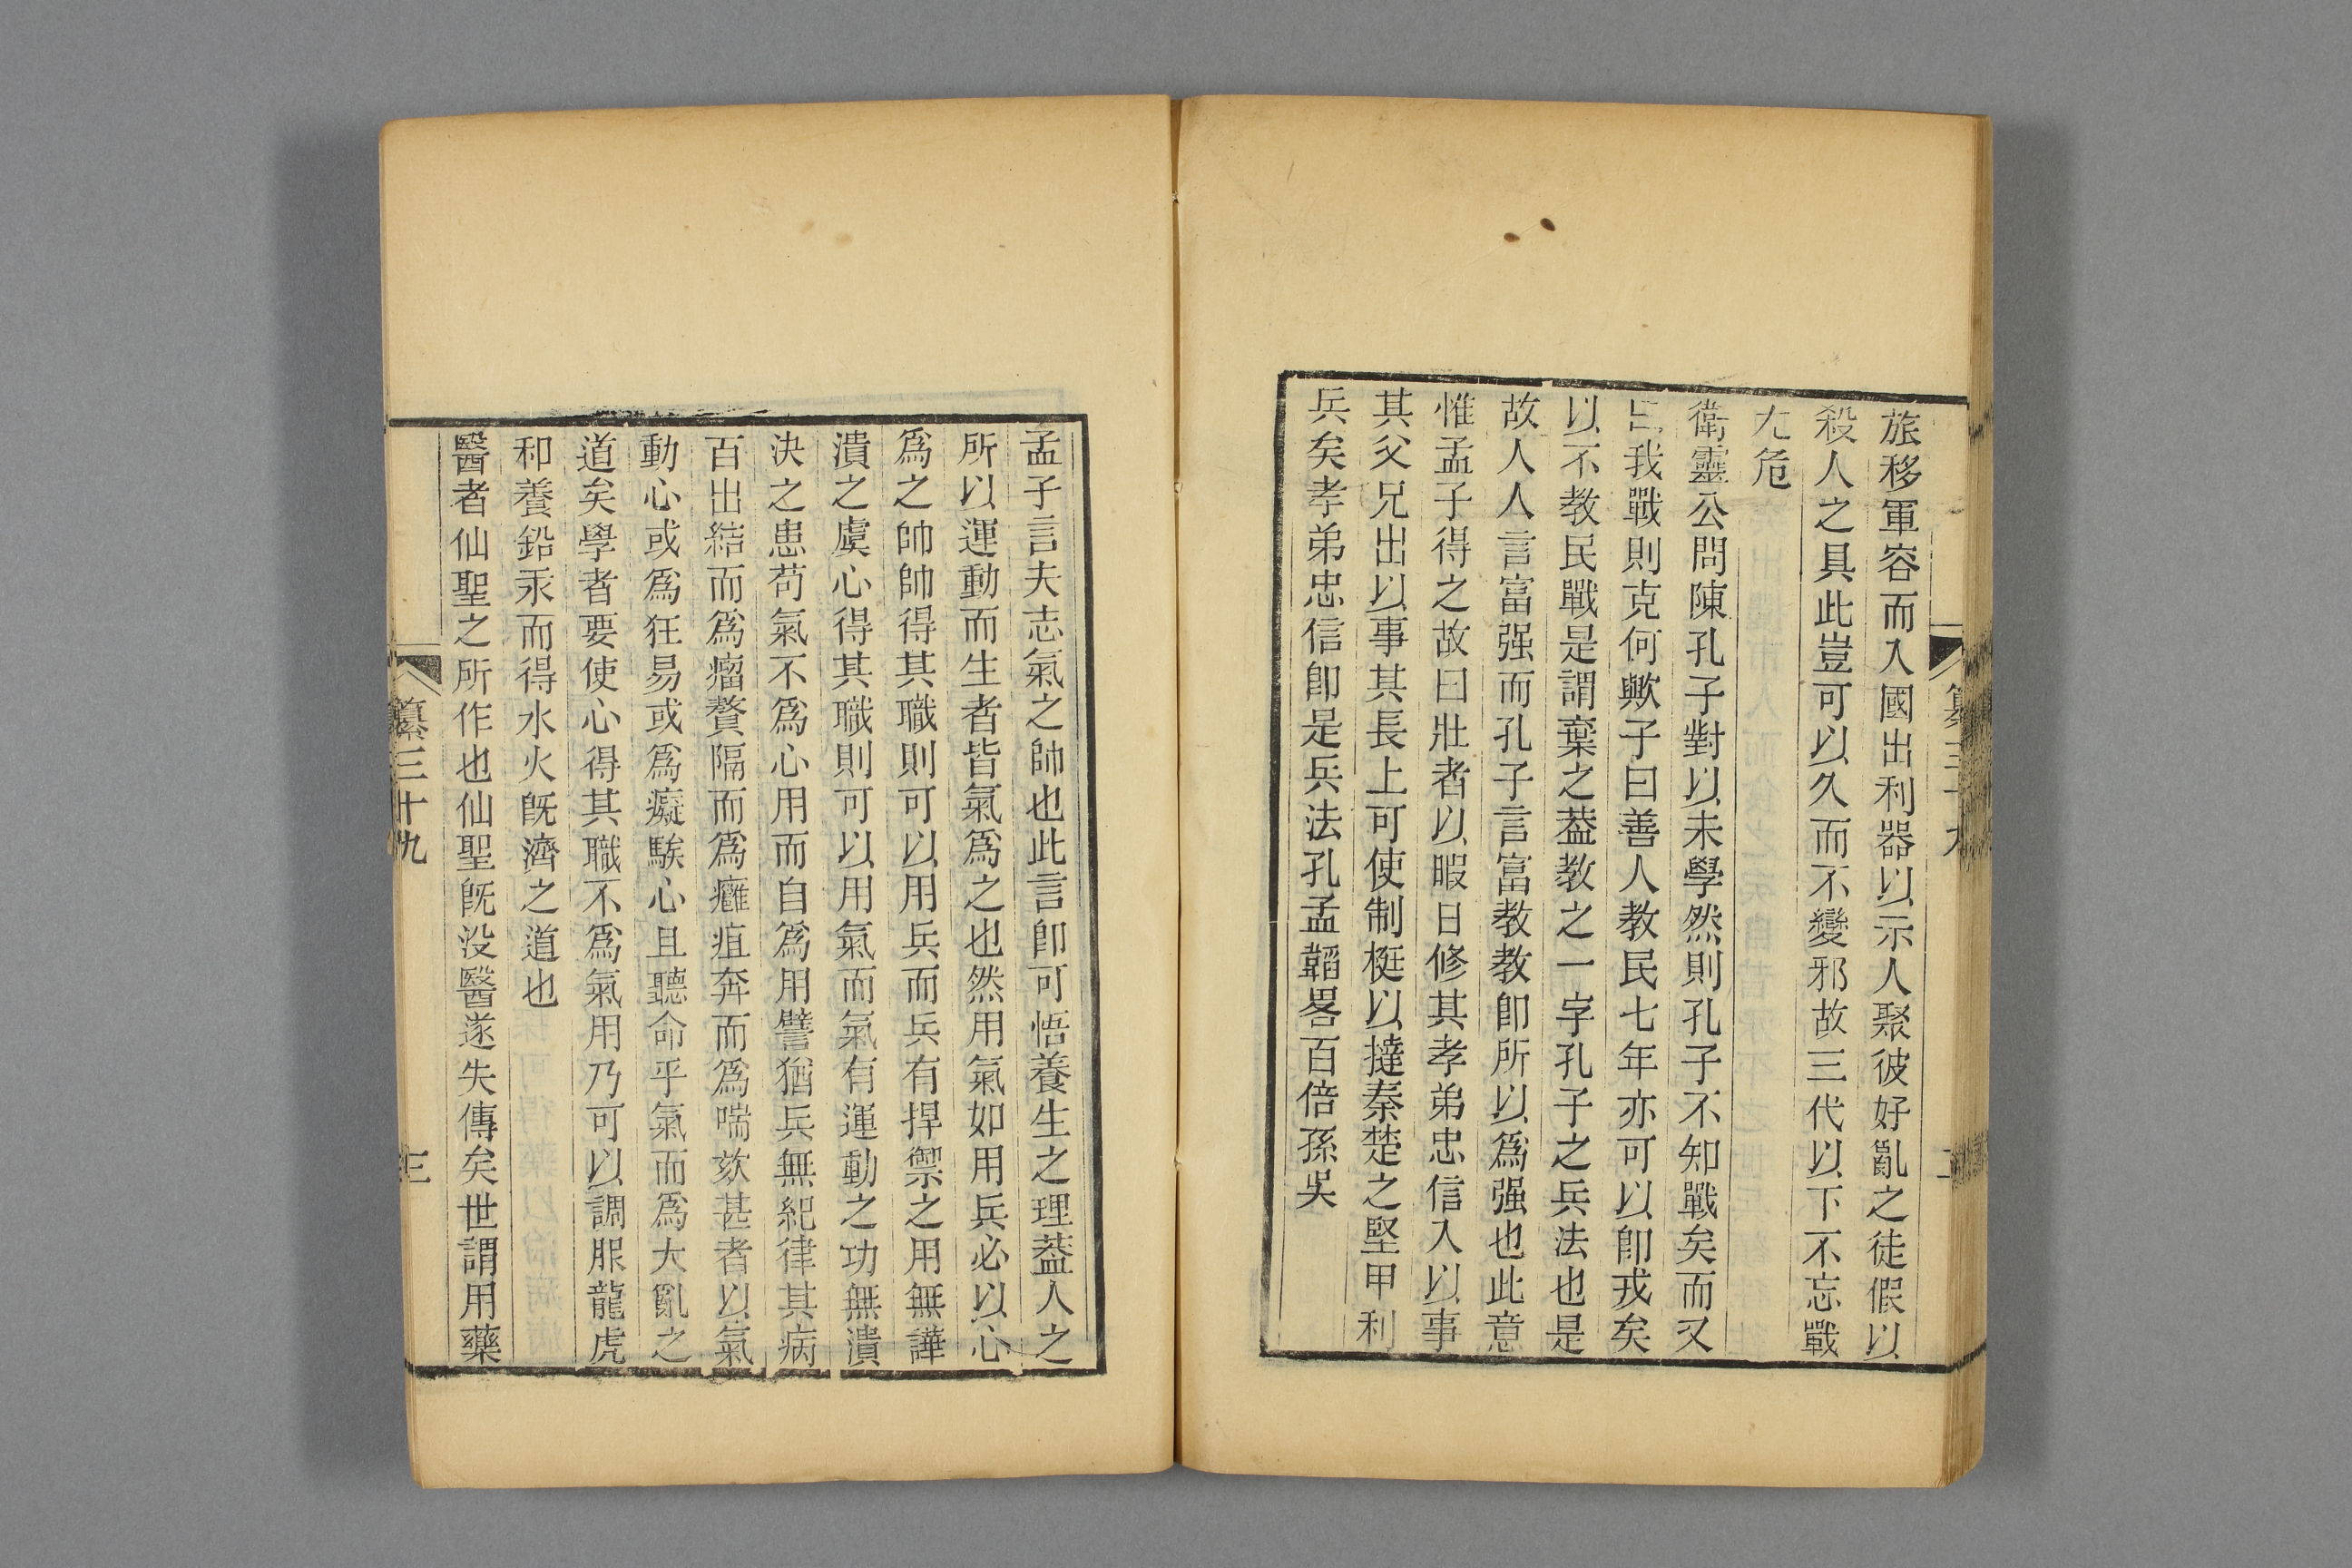 旅移軍容而入國出利器以示人聚彼好亂之徒假以
殺人之具此豈可以久而不變邪故三代以下不忘戰
尢危
衛靈公問陳孔子對以未學然則孔子不知戰矣而又
曰我戰則克何歟子曰善人教民七年亦可以卽戎矣
以不教民戰是謂棄之葢教之一字孔子之兵法也是
故人人言富强而孔子言富教教卽所以爲强也此意
惟孟子得之故曰壯者以暇日修其孝弟忠信入以事
其父兄出以事其長上可使制梃以撻秦楚之堅甲利
兵矣孝弟忠信卽是兵法孔孟韜畧百倍孫吳
孟子言夫志氣之帥也此言卽可悟養生之理葢人之
所以運動而生者皆氣爲之也然用氣如用兵必以心
爲之帥帥得其職則可以用兵而兵有捍禦之用無譁
潰之虞心得其職則可以用氣而氣有運動之功無潰
決之患苟氣不爲心用而自爲用譬猶兵無紀律其病
百出結而爲瘤贅隔而爲癰疽奔而爲喘欬甚者以氣
動心或爲狂易或爲癡騃心且聽命乎氣而爲大亂之
道矣學者要使心得其職不爲氣用乃可以調服龍虎
和養鉛汞而得水火旣濟之道也
醫者仙聖之所作也仙聖旣没醫遂失傳矣世謂用藥
纂三十九
三